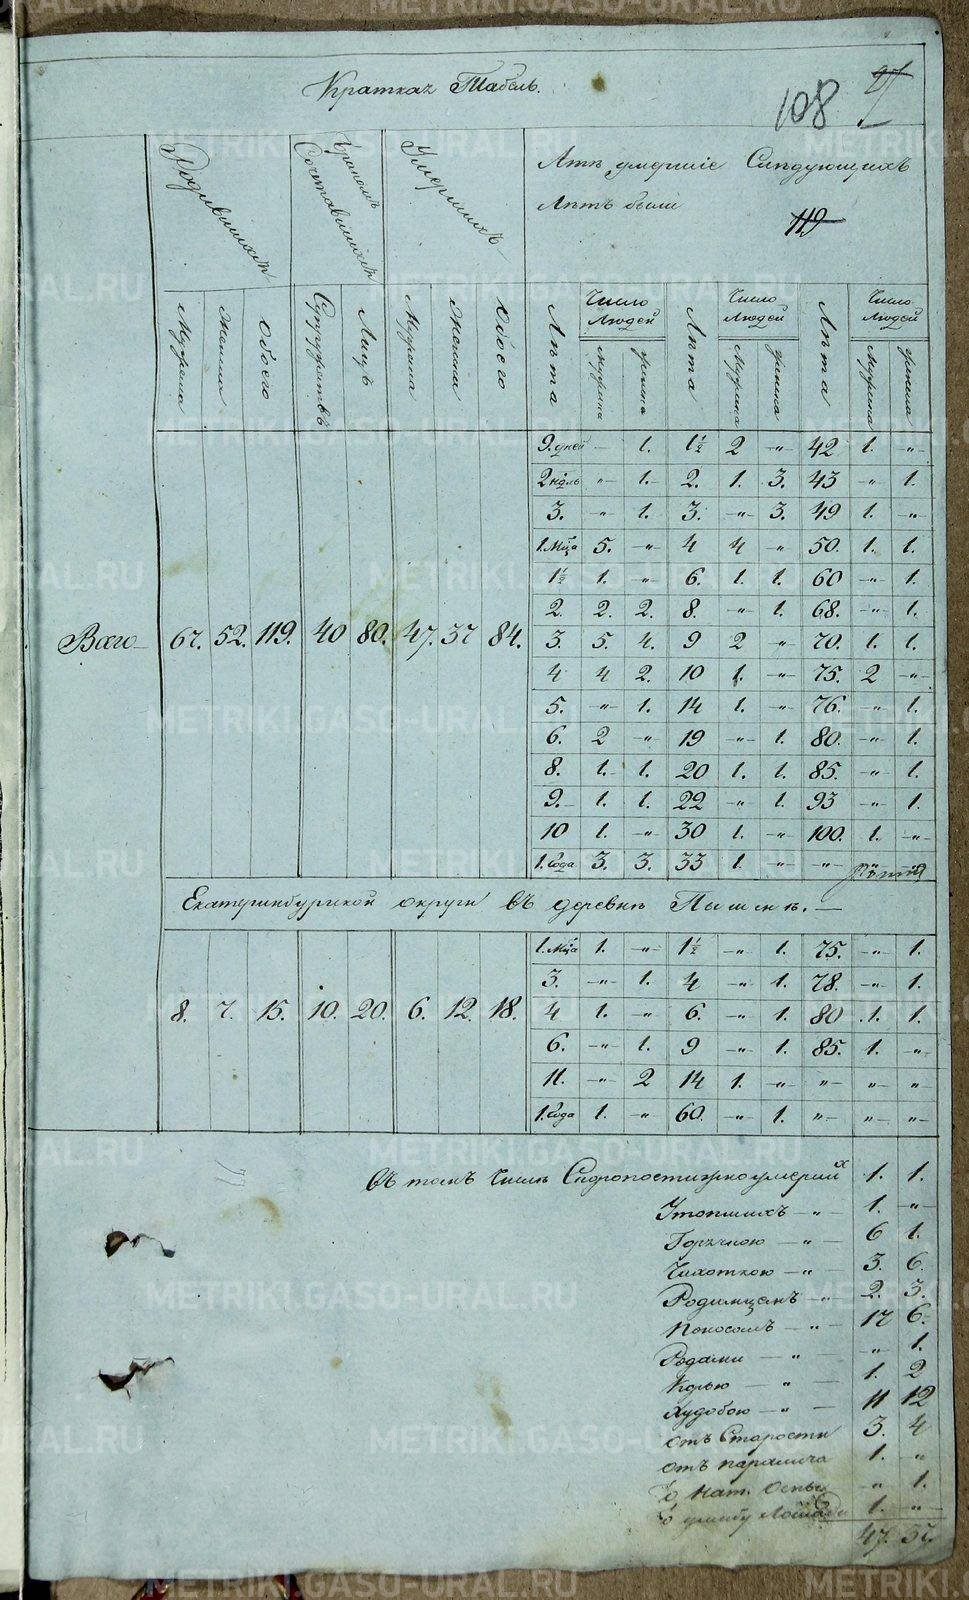 Краткая Табель.
108
119
Родившихся
Бракомъ Сочетавшихся
Умершихъ
Лѣта умершіе Слѣдующихъ
Лѣтъ были
Мужеска Женска Обоего Супружествъ Лицъ Мужеска Женска Обоего Лѣта Число Людей Мужеска Женска Лѣта Число Людей Мужеска Женска Лѣта Число Людей Мужеска Женска
9. дней — 1. 1½ 2 -"- 42 1. -"-
2 нѣдль -"- 1. 2. 1. 3. 43 -"- 1.
3. -"- 1. 3. -"- 3. 49 1. -"-
1. Мца 5. -"- 4 4 -"- 50. 1. 1.
1½ 1. -"- 6. 1. 1. 60 -"- 1.
2. 2. 2. 8. -"- 1. 68. -"- 1.
Всего 67. 52. 119. 40 80. 47. 37 84. 3. 5. 4. 9 2 -"- 70. 1. 1.
4 4 2. 10 1. -"- 75. 2 -"-
5. -"- 1. 14 1. -"- 76. -"- 1.
6. 2 -"- 19 -"- 1. 80. -"- 1.
8. 1. 1. 20 1. 1. 85. -"- 1.
9. 1. 1. 22 -"- 1. 93 -"- 1.
10 1. -"- 30 1. -"- 100. 1. -"-
1. Года 3. 3. 33 1. -"- -"- -"- -"-
Екатеринбургской округи въ деревнѣ Пышмѣ. —
1. Мца 1. -"- 1½ -"- 1. 75. -"- 1.
3. -"- 1. 4 -"- 1. 78. -"- 1.
8. 7. 15. 10. 20. 6. 12. 18. 4 1. -"- 6. -"- 1. 80 1. 1.
6. -"- 1. 9 -"- 1. 85. 1. -"-
11. -"- 2 14 1. -"- -"- -"- -"-
1. Года 1. -"- 60. -"- 1. -"- -"- -"-
Въ томъ Числѣ Скоропостижно умерших 1. 1.
Утопшихъ — " — 1. -"-
Горячкою — " — 6 1.
Чахоткою — " — 3. 6.
Родимцемъ — " 2. 3.
Поносомъ — " — 17 6.
Родами — " — " 1.
Корью — " — 1. 2
Худобою — " — 11 12
отъ Старости 3. 4
отъ паралича 1. "
о нат. Оспы " 1.
о ушибу Лошади 1. -"-
47. 37.
METRIKI.GASO-URAL.RU